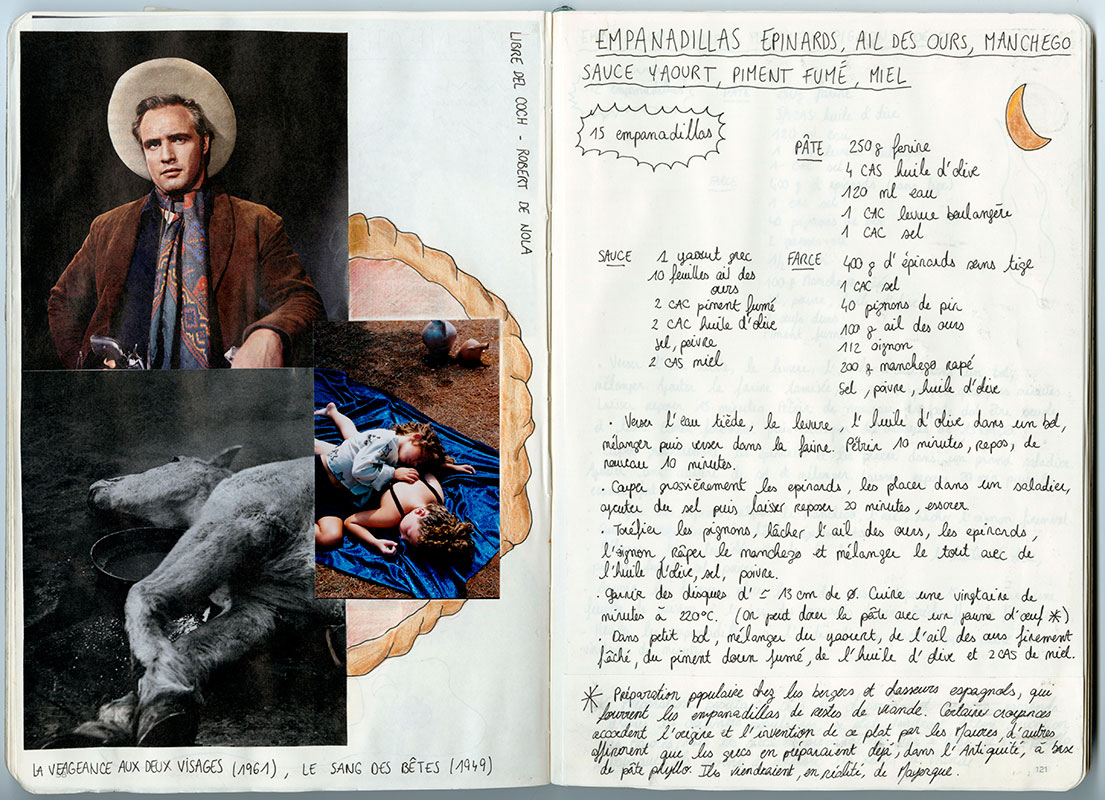 LIBRE DEL COCH - ROBERT DE NOLA
LA VEAGEANCE AUX DEUX VISAGES (1961), LE SANG DES BÊTES (1949)
EMPANADILLAS EPINARDS, AIL DES OURS, MANCHEGO
SAUCE YAOURT, PIMENT FUMÉ, MIEL
15 empanadillas
PÂTE 250 g farine
4 CAS huile d'olive
120 ml eau
1 CAC levure boulangère
1 CAC sel
SAUCE 1 yaourt grec
10 feuilles ail des
ours
2 CAC piment fumé
2 CAC huile d'olive
sel, poivre
2 CAS miel
FARCE 400 g d'épinards sans tige
1 CAC sel
40 pignons de pin
100 g ail des ours
1/2 oignon
200 g manchego rapé
sel, poivre, huile d'olive
• Verser l'eau tiède, la levure, l'huile d'olive dans un bol,
mélanger puis verser dans la farine. Pétrir 10 minutes, repos, de
nouveau 10 minutes.
• Couper grossièrement les epinards, les placer dans un saladier,
ajouter du sel puis laisser reposer 20 minutes, essorer.
• Toréfier les pignons, hâcher l'ail des ours, les epinards,
l'oignon, râper le manchego et mélanger le tout avec de
l'huile d'olive, sel, poivre.
• Garnir des disques d' ≃ 13 cm de Ø. Cuire une vingtaine de
minutes à 220°C. (On peut dorer la pâte avec un jaune d'œuf *)
• Dans petit bol, mélanger du yaourt, de l'ail des ours finement
hâché, du piment doux fumé, de l'huile d'olive et 2 CAS de miel.
* Préparation populaire chez les bergers et chasseurs espagnols, qui
fourrent les empanadillas de restes de viande. Certaines croyances
accordent l'origine et l'invention de ce plat par les Maures, d'autres
affirment que les grecs en préparaient déjà, dans l'Antiquité, à base
de pâte phyllo. Ils viendraient, en réalité, de Majorque.
121